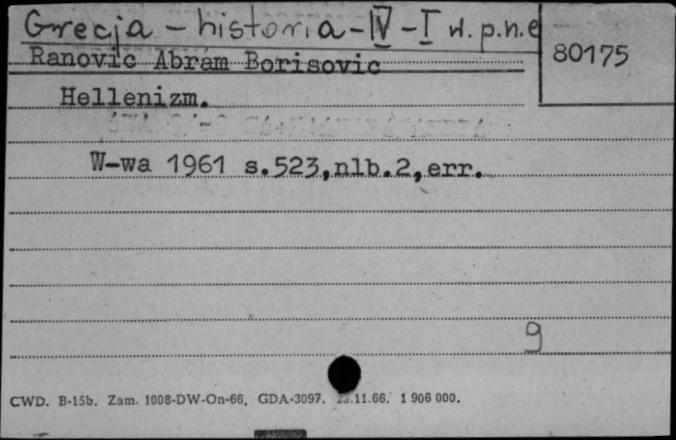 Grecja - historia - IV - I w. p.n.e
80175
Ranovic Abram Borisovic
Hellenizm.
W-wa 1961 s.523,nlb.2,err.
9
CWD. B-15b. Zam. 1008-DW-On-66. GDA-3097. 11.66. 1 906 000.